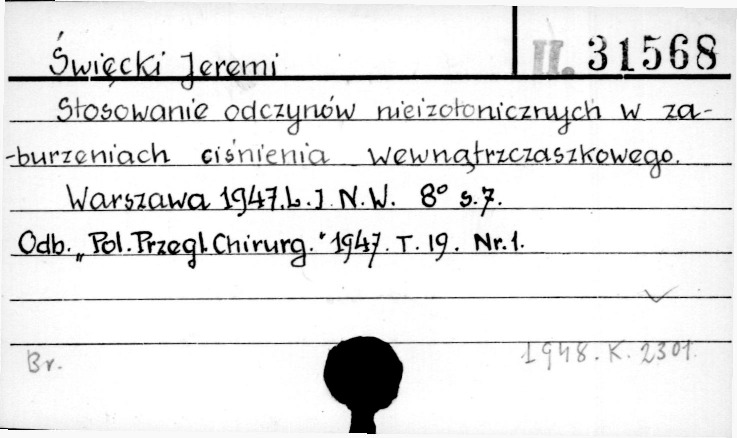 Święcki Jeremi
II. 31568
Stosowanie odczynów nieizotonicznych w za-
-burzeniach ciśnienia wewnątrzczaszkowego.
Warszawa 1947. L. I. N. W. 8° s. 7.
Odb. „Pol. Przegl. Chirurg." 1947. T. 19. Nr. 1.
Br.
1948. K. 2301.